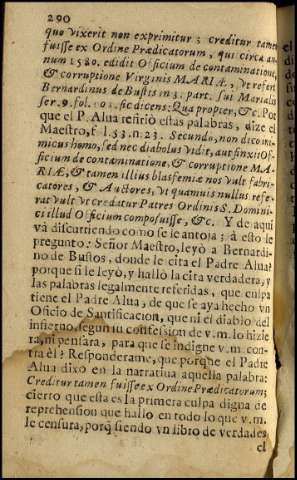 290
quo vixerit non exprimitur; creditur tamen
fuisse ex Ordine Prædicatorum, qui circa an-
num 1580. edidit Officium de contaminatione,
& corruptione Virginis MARIÆ, ut refert
Bernardinus de Bustis in 3. part. sui Marialis
ser. 9. fol. sic dicens: Qua propter, &c. Por
que el P. Alua refirió estas palabras, dize el
Maestro, f l. 53. n. 23. Secundo, non dico ini-
micus homo, sed nec diabolus vidit, aut finxit Of-
ficium de contaminatione, & corruptione MA-
RIÆ, & tamen illius blasfemiæ nos vult fabri-
catores, & Auctores, vt quamuis nullus refe-
rat vult vt credatur Patres Ordinis S. Domini-
ci illud Officium composuisse, &c. Y de aqui
và discurriendo como se le antoja; à esto le
pregunto: Señor Maestro, leyò a Bernardi-
no de Bustos, donde le cita el Padre Alua?
porque si le leyò, y hallò la cita verdadera, y
las palabras legalmente referidas, que culpa
tiene el Padre Alua, de que se aya hecho vn
Oficio de Santificacion, que ni el diablo del
infierno, segun su confession de v.m. lo hizie
ra, ni pensara, para que se indigne v.m. con-
tra èl? Responderame, que porque el Padre
Alua dixo en la narratiua aquella palabra:
Creditur tamen fuisse ex Ordine Prædicatorum;
cierto que esta es la primera culpa digna de
reprehension que hallo en todo lo que v.m.
le censura, porq̃ siendo vn libro de verdades
el